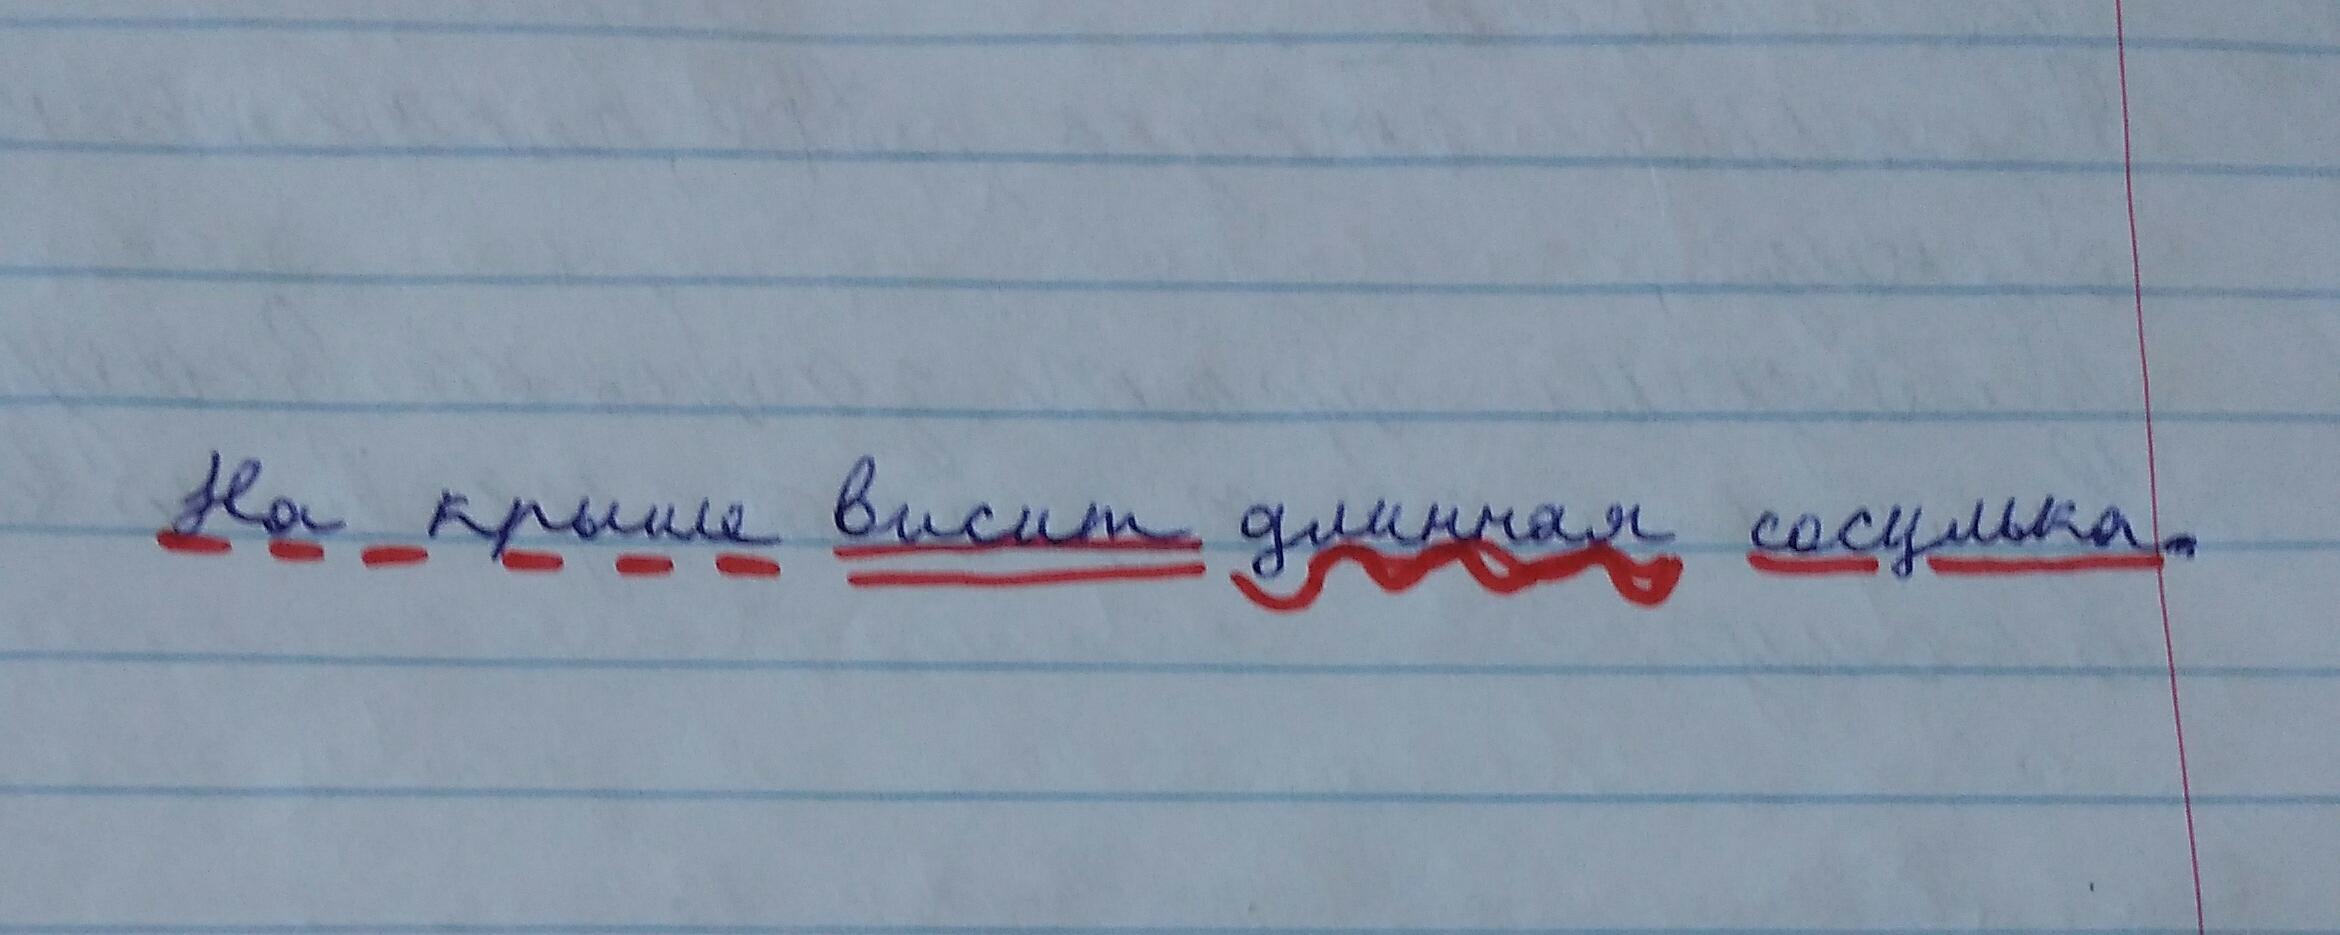 На крыше висит длинная сосулька.